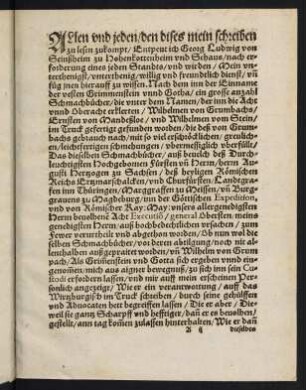 Allen vnd jeden / den dises mein schreiben
zu lesen zukompt / Entpeut ich Georg Ludwig von
Seinßheim zu Hohenkottenheim vnd Schaus / nach er-
forderung eines jeden Standts / vnd wirden / Mein vn-
terthenigst / vnterthenig / willig vnd freundtlich dienst / vñ
füg jnen hierauff zu wissen. Nach dem inn der Einname
der vesten Grimmenstein vnnd Gotha / ein gross anzel
Schmachbücher / die vnter dem Namen / der inn die Acht
vnnd Oberacht erklerten / Wilhelmen von Grumbachs /
Ernsten von Mandeßloe / vnd Wilhelmen vom Stein /
im Truck gefertigt gefunden worden / die deß von Grum-
bachs gebrauch nach / mit so viel erschröcklichen / greulich-
en / leichtfertigen schmehungen / vbermessiglich vberfült /
Das dieselben Schmachbücher / auß beuelch deß Durch-
leuchtigsten Hochgebornen Fürsten vñ Herrn / herrn Au-
gusti Hertzogen zu Sachsen / deß heyligen Römischen
Reichs Ertzmarschalcken / vnd Churfürsten / Landtgra-
fen inn Thüringen / Marggraffen zu Meissen / vñ Burg-
grauens zu Magdeburg / inn der Gottischen Expedition,
vnd von Römischer Kay: May: vnsers allergenedigsten
Herrn beuolhene Acht Executio / general Obersten / meins
genedigsten Herrn / auß hochbedechtlichen vrsachen / zum
Fewer verurtheilt vnd abgethon worden / Ob nun wol die
selben Schmachbücher / vor deren abtilgung / noch nie al-
lenthalben außgespraitet worden / vñ Wilhelm von Grum-
pach / Als Grimmenstein vnd Gotta sich ergeben vnnd ein-
genomen / mich aus aigner bewegnuß / zu sich inn sein Cu-
stodi erfordern lassen / vnd mir auff mein erscheinen Per-
sonlich angezeigt / Wie er ein verantwortung / auff das
Wirtzburgisch im Truck schreiben / durch seine gehülffen
vnd Aduocaten hett begreiffen lassen / Die er aber / Die-
weil sie gantz Scharpff vnd hefftiger / dañ er es beuolhen /
gestellt / ann tag komen zulassen hinterhalten / Wie er dañ
A ij dieselben